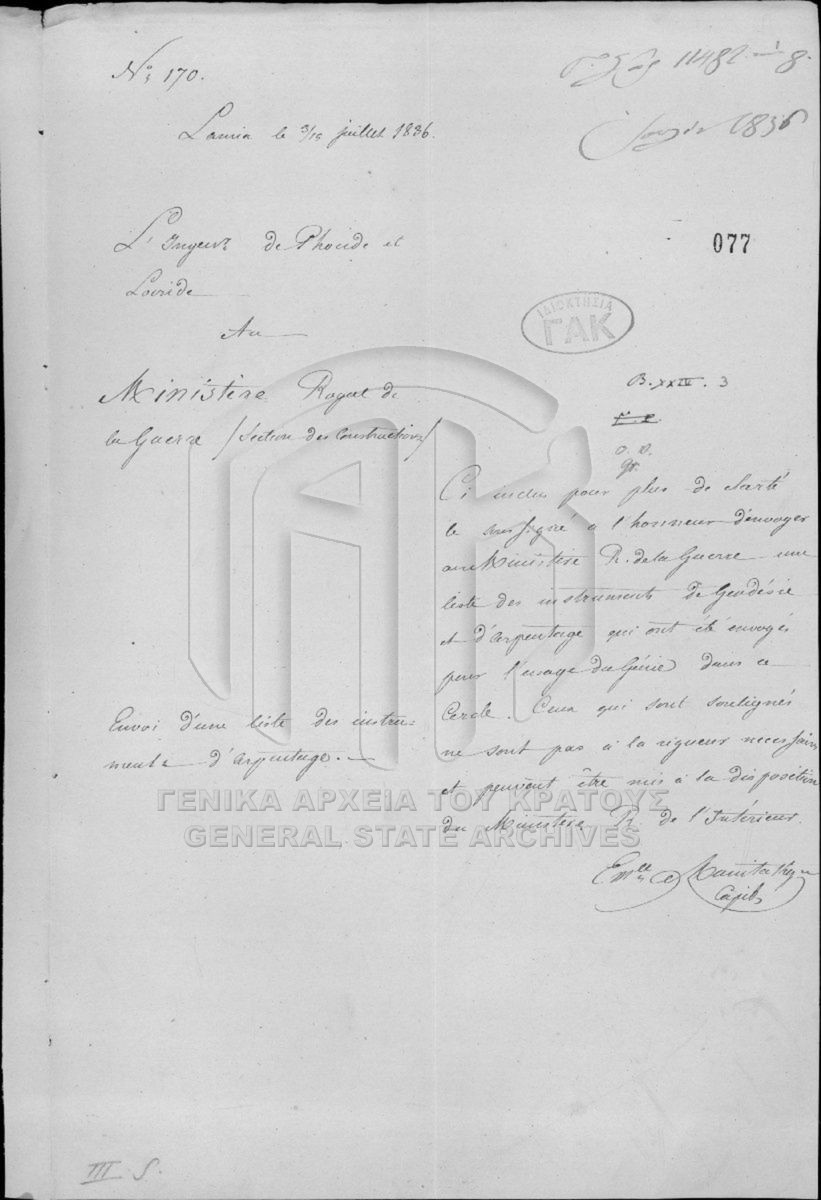 N° 170.
Lamia le 3/15 juillet 1836.
11482
1836
L'Ingeur de Phocide et
Locride
Au
Ministère Royal de
la Guerre / Section des Constructions /
077
ΙΔΙΟΚΤΗΣΙΑ
ΓΑΚ
B. XXIV. 3
Ci inclus pour plus de clarté
le soussigné à l'honneur d'envoyer
au Ministère R. de la Guerre une
liste des instruments de Géodésie
et d'arpentage qui ont été envoyés
pour l'usage du Génie dans ce
Cercle. Ceux qui sont soulignés
ne sont pas à la rigueur necessaires
et peuvent être mis à la disposition
du Ministère R. de l'Intérieur.
Envoi d'une liste des instru=
ments d'arpentage.
ΓΕΝΙΚΑ ΑΡΧΕΙΑ ΤΟΥ ΚΡΑΤΟΥΣ
GENERAL STATE ARCHIVES
Emlle Manitaky
Capit
III